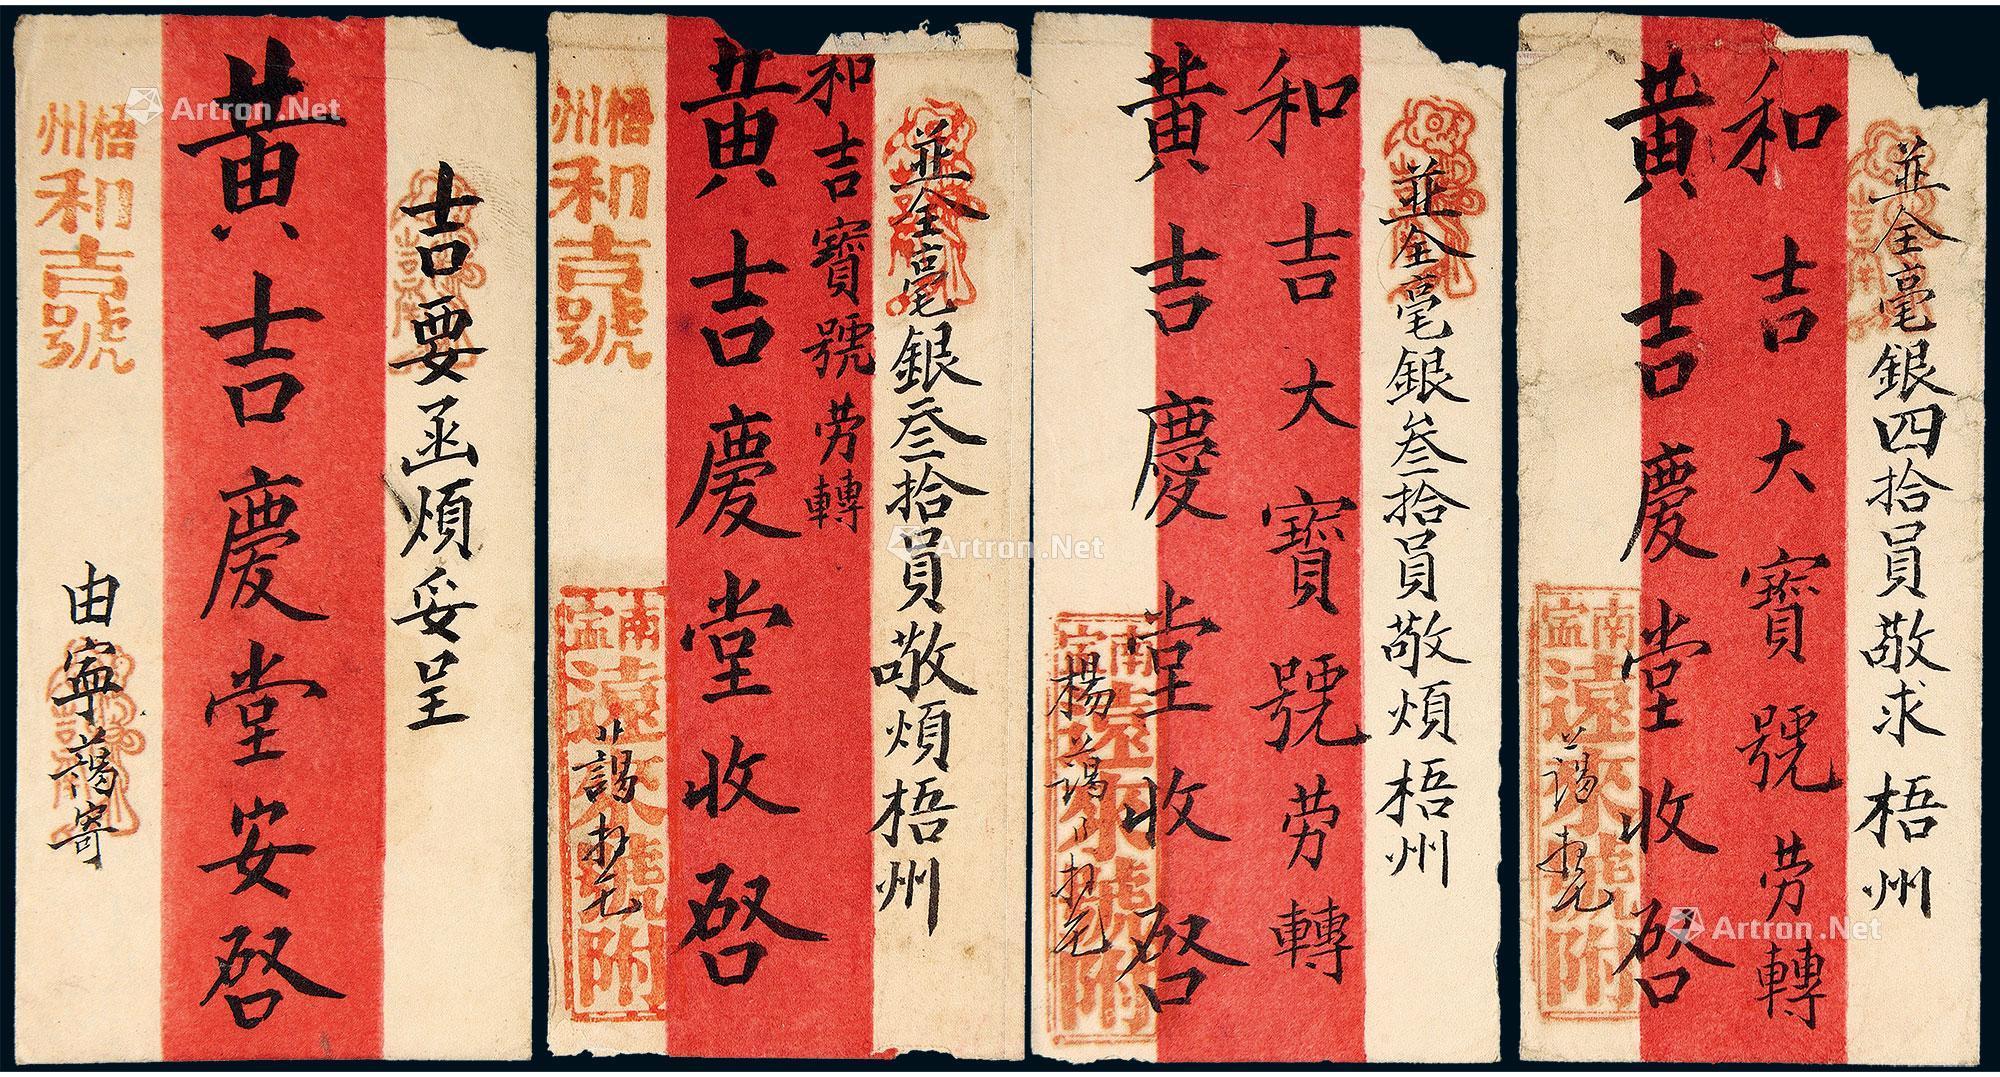 吉要函煩妥呈
黃吉慶堂安啓
由寧藹寄
梧州
和吉號
並全毫銀叁拾員敬煩梧州
和吉寶號劳轉
黃吉慶堂收啓
梧州
和吉號
南寧
遠來號附
並全毫銀叁拾員敬煩梧州
和吉大寶號劳轉
黃吉慶堂收啓
南寧
遠來號附
並全毫銀四拾員敬求梧州
和吉大寶號劳轉
黃吉慶堂收啓
南寧
遠來號附
Artron.Net
Artron.Net
Artron.Net